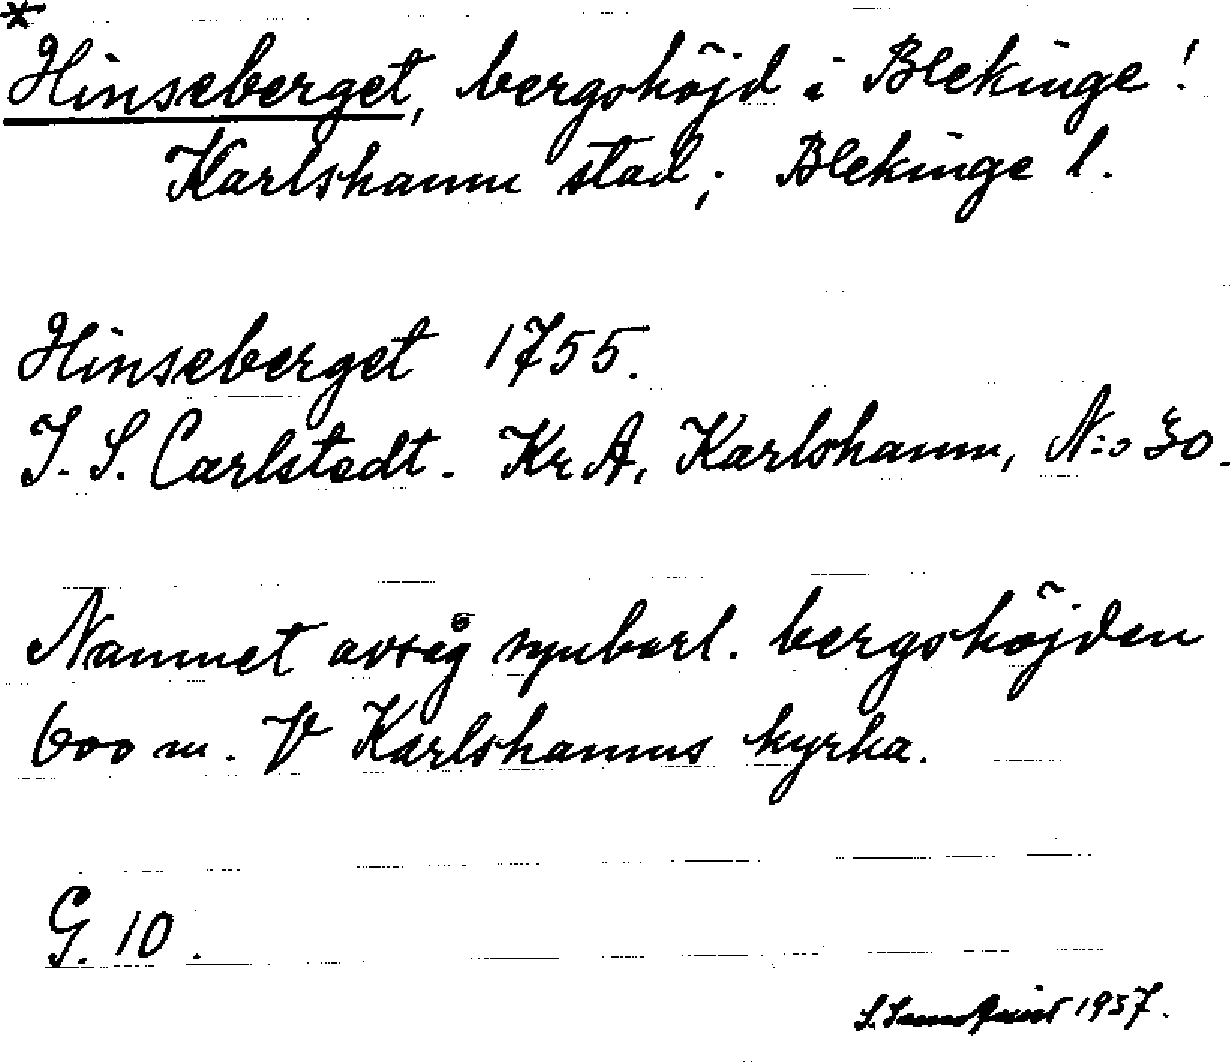 *
Hinseberget, bergshöjd i Blekinge!
Karlshamn stad; Blekinge l.
Hinseberget 1755.
J. S. Carlstedt. KrA, Karlshamn, N:o 30.
Namnet avsåg synbarl. bergshöjden
600 m. V Karlshamns kyrka.
G. 10.
1957.